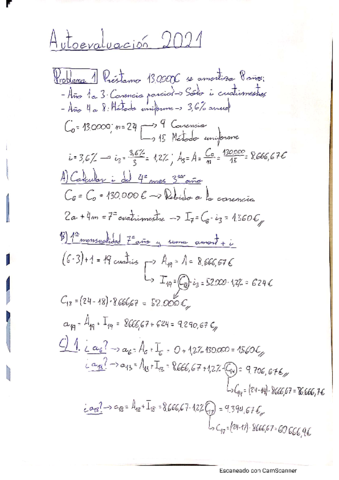 Autoevaluación 2021
Problema 1 Préstamo 130000€ se amortiza 8 años;
- Año 1 a 3: Carencia parcial → Sólo i cuatrimestres
- Año 4 a 8: Método uniforme → 3,6% anual
C₀ = 130000; n = 24 → 9 Carencia
→ 15 Método uniforme
i = 3,6% → i₃ = 3,6%/3 = 1,2%; A₁ = A = C₀/n = 130000/15 = 8.666,67€
A) Calcular i del 4º mes 3er año
C₆ = C₀ = 130.000€ → Debido a la carencia
2a + 4m = 7º cuatrimestre → I₇ = C₆ · i₃ = 1560€
B) 1ª mensualidad 7º año y suma amort + i
(6·3)+1 = 19 cuatris → A₁₉ = A = 8.666,67€
→ I₁₉ = C₁₈ · i₃ = 52.000 · 1,2% = 624€
C₁₇ = (24-18) · 8666,67 = 52.000€
a₁₉ = A₁₉ + I₁₉ = 8666,67 + 624 = 9.290,67€
C) 1. ¿a₆? → a₆ = A₆ + I₆ = 0 + 1,2% · 130000 = 1560€
¿a₁₅? → a₁₅ = A₁₅ + I₁₅ = 8.666,67 + 1,2% · C₁₄ = 9.706,67€
→ C₁₄ = (24-14) · 8666,67 = 86666,7€
¿a₁₈? → a₁₈ = A₁₈ + I₁₈ = 8.666,67 + 1,2% C₁₇ = 9.394,67€
→ C₁₇ = (24-17) · 8666,67 = 60666,9€
Escaneado con CamScanner